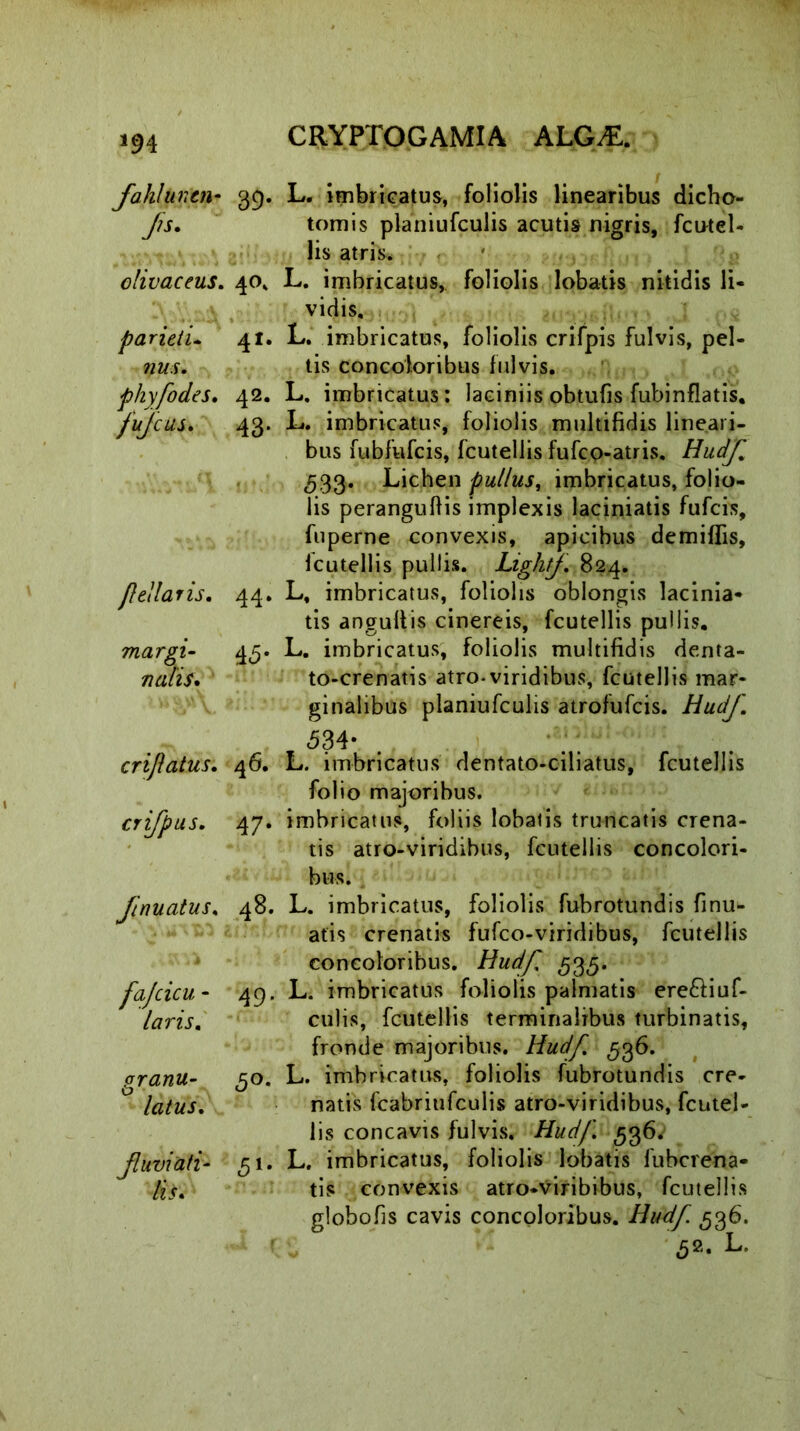 194 CRYPTOGAMIA ALGÆ.
fahlunen- 39. L. imbricatus, foliolis linearibus dicho-
ſis. tomis planiuſculis acutis nigris, ſcutel-
lis atris.
olivaceus. 40. L. imbricatus, foliolis lobatis nitidis li-
vidis.
parieti- 41. L. imbricatus, foliolis criſpis fulvis, pel-
nus. tis concoloribus fulvis.
phyſodes. 42. L. imbricatus: laciniis obtuſis ſubinflatis.
fuſcus. 43. L. imbricatus, foliolis multifidis lineari-
bus ſubfuſcis, ſcutellis fuſco-atris. Hudſ.
533. Lichen pullus, imbricatus, folio-
lis peranguſtis implexis laciniatis fuſcis,
ſuperne convexis, apicibus demiſſis,
ſcutellis pullis. Lightf. 824.
ſtellaris. 44. L, imbricatus, foliolis oblongis lacinia-
tis anguſtis cinereis, ſcutellis pullis.
margi- 45. L. imbricatus, foliolis multifidis denta-
nalis. to-crenatis atro-viridibus, ſcutellis mar-
ginalibus planiuſculis atrofuſcis. Hudſ.
534.
criſtatus. 46. L. imbricatus dentato-ciliatus, ſcutellis
folio majoribus.
criſpus. 47. imbricatus, foliis lobatis truncatis crena-
tis atro-viridibus, ſcutellis concolori-
bus.
ſinuatus. 48. L. imbricatus, foliolis ſubrotundis ſinu-
atis crenatis fuſco-viridibus, ſcutellis
concoloribus. Hudſ. 535.
faſcicu- 49. L. imbricatus foliolis palmatis erectiuſ-
laris. culis, ſcutellis terminalibus turbinatis,
fronde majoribus. Hudſ. 536.
granu- 50. L. imbricatus, foliolis ſubrotundis cre-
latus. natis ſcabriuſculis atro-viridibus, ſcutel-
lis concavis fulvis. Hudſ. 536.
fluviati- 51. L. imbricatus, foliolis lobatis ſubcrena-
lis. tis convexis atro-viribibus, ſcutellis
globoſis cavis concoloribus. Hudſ. 536.
52. L.